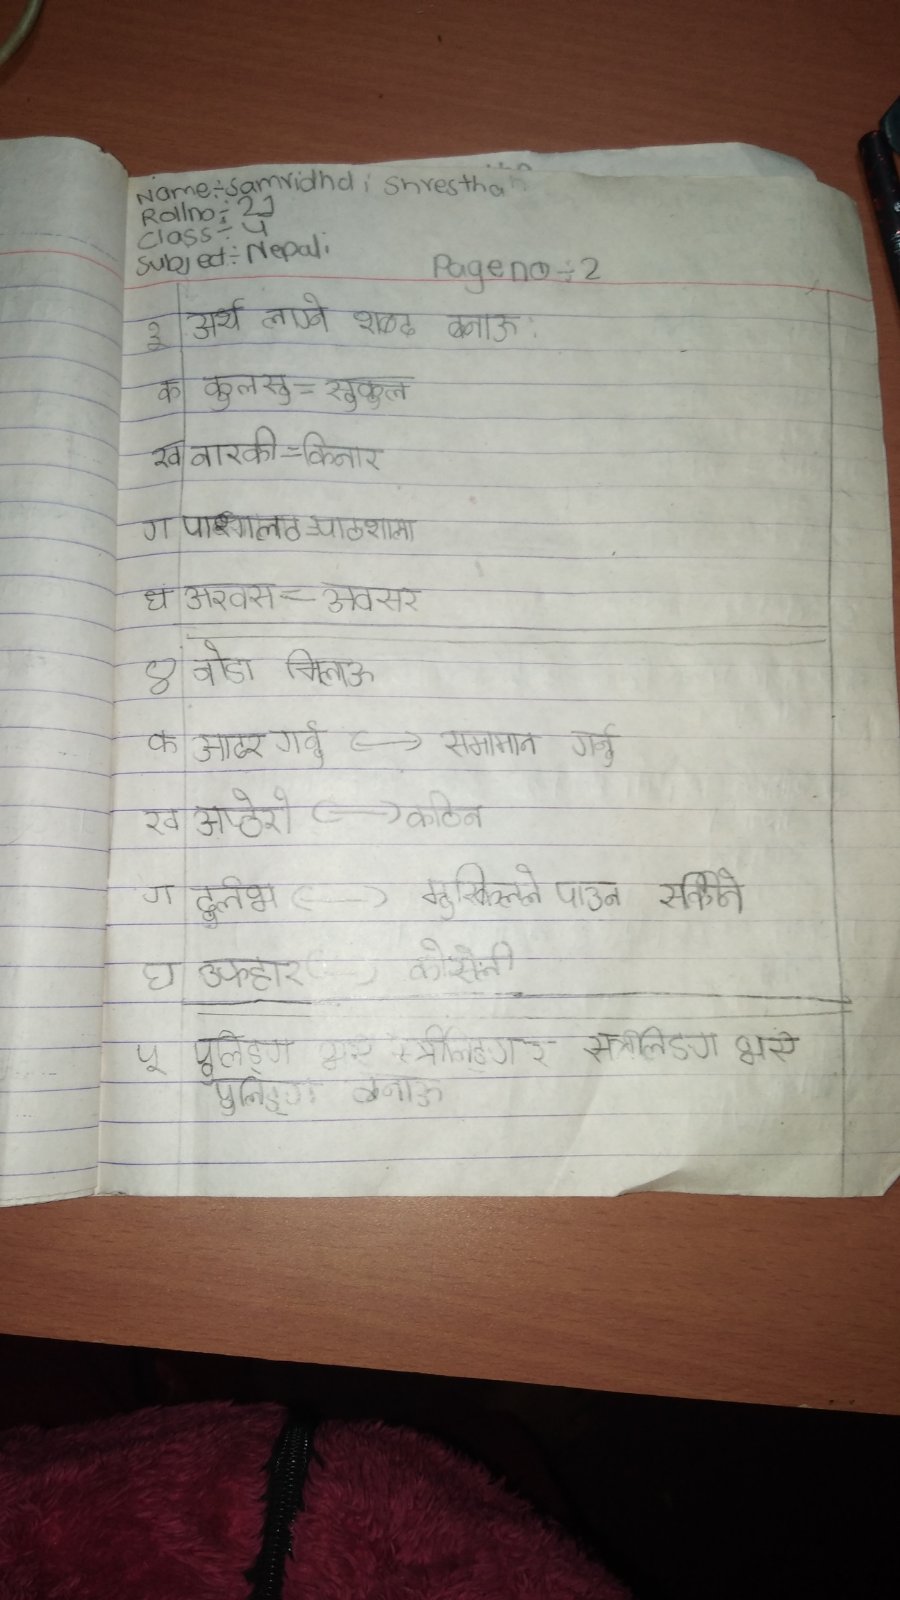 Name:-Samridhdi Shrestha
Rollno:-21
Class:-4
Subject:-Nepali
Page no:-2
३ अर्थ लाग्ने शब्द बनाऊ:
क कुलसु = सुकुल
ख नारकी = किनार
ग = पाठशाला
घ अरवस = अवसर
४ जोडा मिलाऊ
क आदर गर्नु <-> समामान गर्नु
ख अप्ठेरो <-> कठिन
ग दुर्लभ <-> पाउन सकिने
घ उपहार <-> कोसेली
५ पुलिङ्ग भए स्त्रीलिङ्ग र स्त्रीलिङग भए
पुलिङ्ग बनाऊ